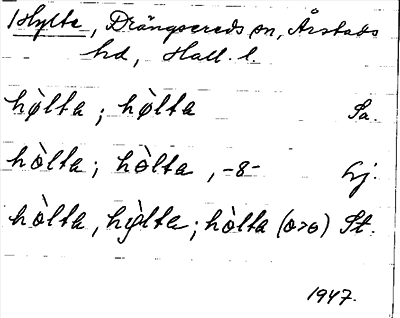 Hylte, Drängsereds sn, Årstads
hd, Hall. l.
hø̀lta; hø̀lta Sa.
hòlta; hòlta, -8- Hj.
hòlta, hỳlta; hòlta (o>ø) St.
1947.